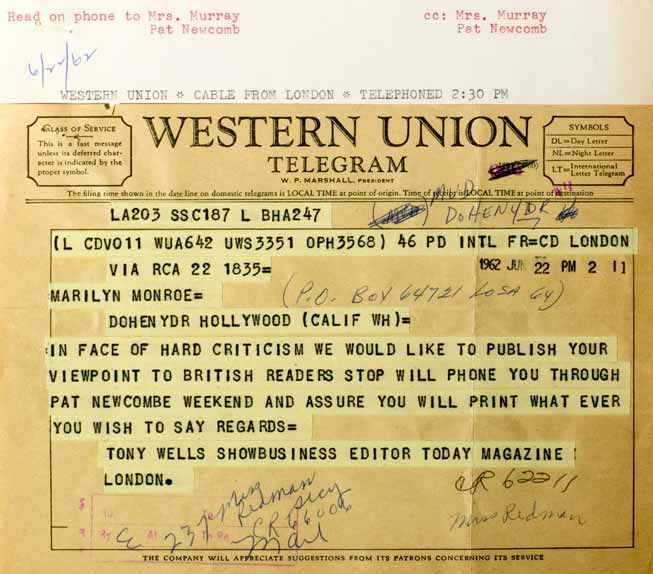 Read on phone to Mrs. Murray
Pat Newcomb
cc: Mrs. Murray
Pat Newcomb
6/22/62
WESTERN UNION * CABLE FROM LONDON * TELEPHONED 2:30 PM
CLASS OF SERVICE
This is a fast message
unless its deferred char-
acter is indicated by the
proper symbol.
WESTERN UNION
TELEGRAM
W. P. MARSHALL, PRESIDENT
SYMBOLS
DL=Day Letter
NL=Night Letter
LT=International
Letter Telegram
The filing time shown in the date line on domestic telegrams is LOCAL TIME at point of origin. Time of receipt is LOCAL TIME at point of destination
LA203 SSC187 L BHA247
DOHENY DR
(L CDV011 WUA642 UWS3351 OPH3568) 46 PD INTL FR=CD LONDON
VIA RCA 22 1835=
1962 JUN 22 PM 2 11
MARILYN MONROE=
(P.O. BOX 64721 LOSA 64)
DOHENYDR HOLLYWOOD (CALIF WH)=
IN FACE OF HARD CRITICISM WE WOULD LIKE TO PUBLISH YOUR
VIEWPOINT TO BRITISH READERS STOP WILL PHONE YOU THROUGH
PAT NEWCOMBE WEEKEND AND ASSURE YOU WILL PRINT WHAT EVER
YOU WISH TO SAY REGARDS=
TONY WELLS SHOWBUSINESS EDITOR TODAY MAGAZINE
LONDON.
CR 62211
Miss Redman
237p
Miss
Redman
CR 66006
Mail
THE COMPANY WILL APPRECIATE SUGGESTIONS FROM ITS PATRONS CONCERNING ITS SERVICE